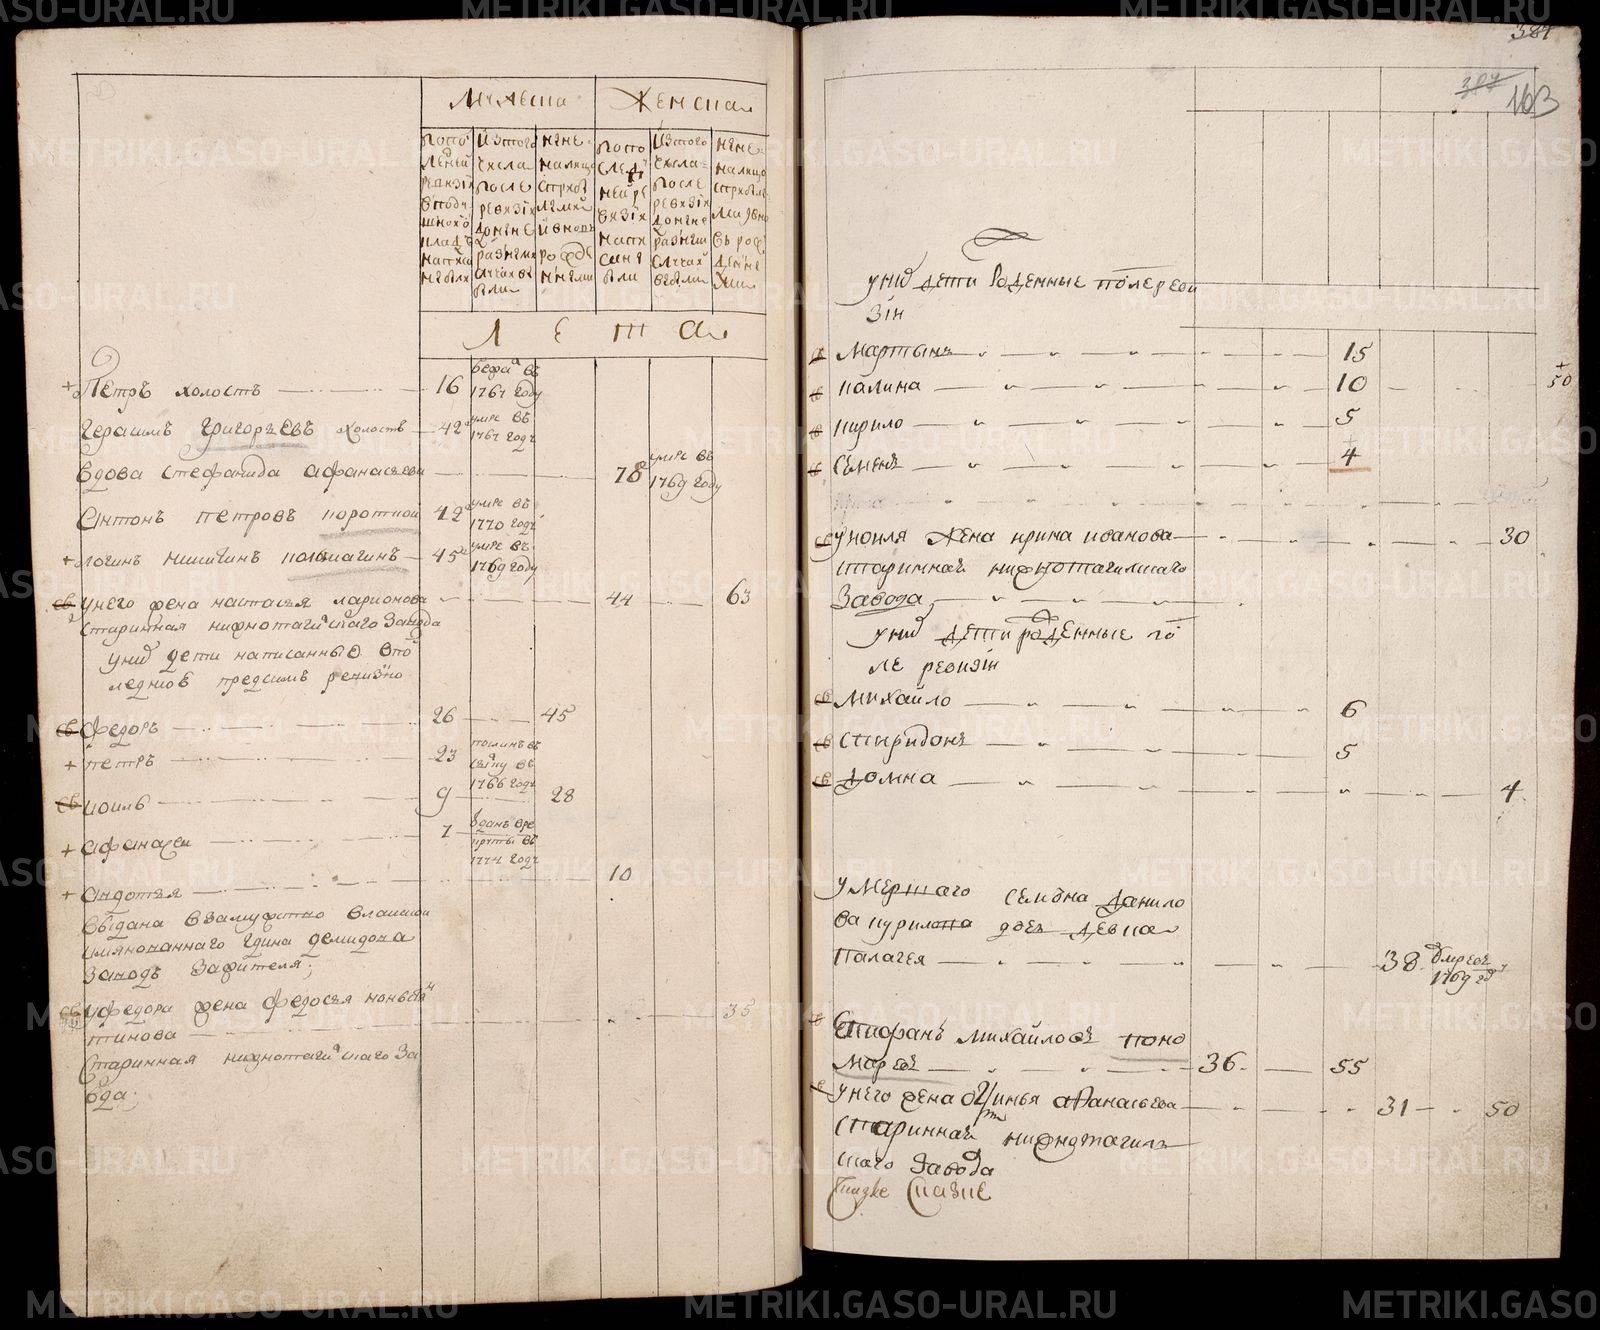 METRIKI.GASO-URAL.RU
Мужеска Женска
по по
следней
ревизіи
в подушном
окладе
написаны
были
Из того
числа
после
ревизіи
до ныне
разными
случаи вы
были
ныне
налицо
с прибы
лыми
и вновь
рожде
нными
по по
след
ней ре
визіи
напи
саны
были
Из того
числа
после
ревизіи
до ныне
разными
случаи
выбыли
ныне
налицо
с прибылы
ми и вно
вь рож
денны
ми
Л е т а
Петръ холостъ 16 бежа въ 1767 году
Герасимъ Григорьевъ холостъ 42 умре въ 1767 году
Вдова Стефанида Афанасьева 78 умре въ 1769 году
Антонъ Петровъ короткой 42 умре въ 1770 году
Логинъ Никитинъ 45 умре въ 1769 году
у него жена настасья ларионова 44 63
Старинная нижнотагилскаго завода
у них дети написанные в по
следнюю пред сим ревизию
Федоръ 26 45
петръ 23 1766 году
иоиль 9 28
Афанасеи 1 отданъ в рекруты въ 1774 году
Авдотья 10
выдана в замужство
имянованнаго Гдина демидова
заводъ за жителя;
у Федора жена Федосья
тинова 35
Старинная нижнотагилскаго за
вода;
384
307
163
у них дети рожденные после реви
зіи
Мартынъ 15
калина 10 50
кирило 5
Семенъ 4
у иоиля жена ирина иванова 30
старинная нижнотагилскаго
завода
у них дети рожденные по
сле ревизіи
михайло 6
спиридонъ 5
домна 4
умершаго Семена данило
ва курилова дочь девка
Палагея 38 умре въ 1769 г
Степанъ михайловъ поно
маревъ 36 55
у него жена Офинья афанасьева 31 50
старинная нижнотагилъ
скаго завода